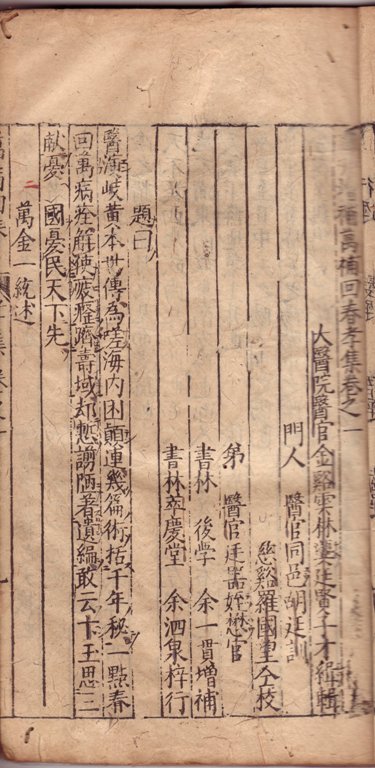 補萬補回春孝集卷之一
大醫院醫官金谿雲林龔廷賢子才編輯
門人　醫官同邑胡廷訓
慈谿羅國望仝校
弟　醫官廷器姪懋官
書林　後学　余一貫增補
書林萃慶堂　余泗泉梓行
題曰
醫源岐黃本世傳為嗟海內困顛連幾篇術括千年秘一點春
回萬病痊解使疲癃躋壽域却慙謭陋著遺編敢云卞玉思三
献憂　國憂民天下先
萬金一統述